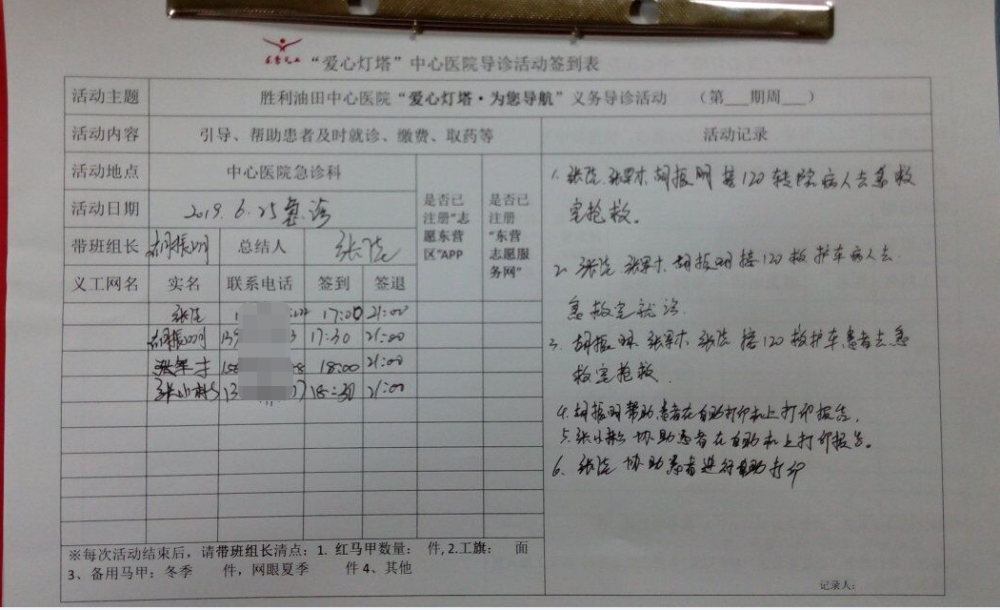 “爱心灯塔”中心医院导诊活动签到表
活动主题 胜利油田中心医院“爱心灯塔·为您导航”义务导诊活动 （第___期周___）
活动内容 引导、帮助患者及时就诊、缴费、取药等 活动记录
活动地点 中心医院急诊科
是否已注册“志愿东营区”APP
是否已注册“东营志愿服务网”
活动日期 2019.6.25急诊
带班组长 胡振明 总结人 张浩
义工网名 实名 联系电话 签到 签退
17:00 21:00
胡振明 17:30 21:00
张军才 18:00 21:00
张小 18:30 21:00
1. 胡振明 接120转院病人去急救
室抢救。
2. 胡振明 接120救护车病人去
急救室就诊
3. 胡振明 接120救护车患者去急
救室抢救
4. 胡振明帮助患者在自助打印机上打印报告，
5. 张小 协助患者在自助机上打印报告。
6. 协助患者进行自助打印
※每次活动结束后，请带班组长清点：1. 红马甲数量： 件, 2.工旗： 面
3、备用马甲：冬季 件，网眼夏季 件 4、其他
记录人：